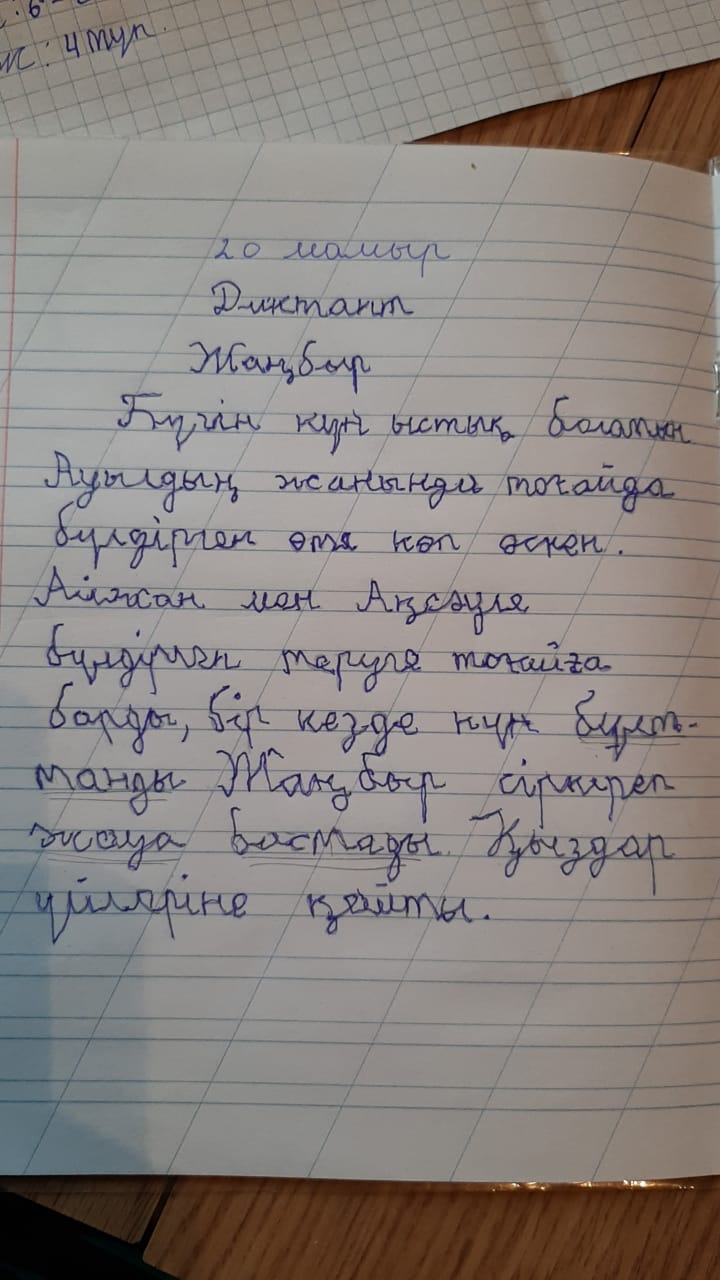 ж: 4 түп.
20 мамыр
Диктант
Жаңбыр
Бүгін күн ыстық болатын
Ауылдың жанында тоғайда
бүлдірген өтя көп өскен.
Айжан мен Ақсәуля
бүлдірген теруге тоғайға
барды, бір кезде күн бұлт-
танды Жаңбыр сіркіреп
жауа бастады. Қыздар
үйляріне қайтты.